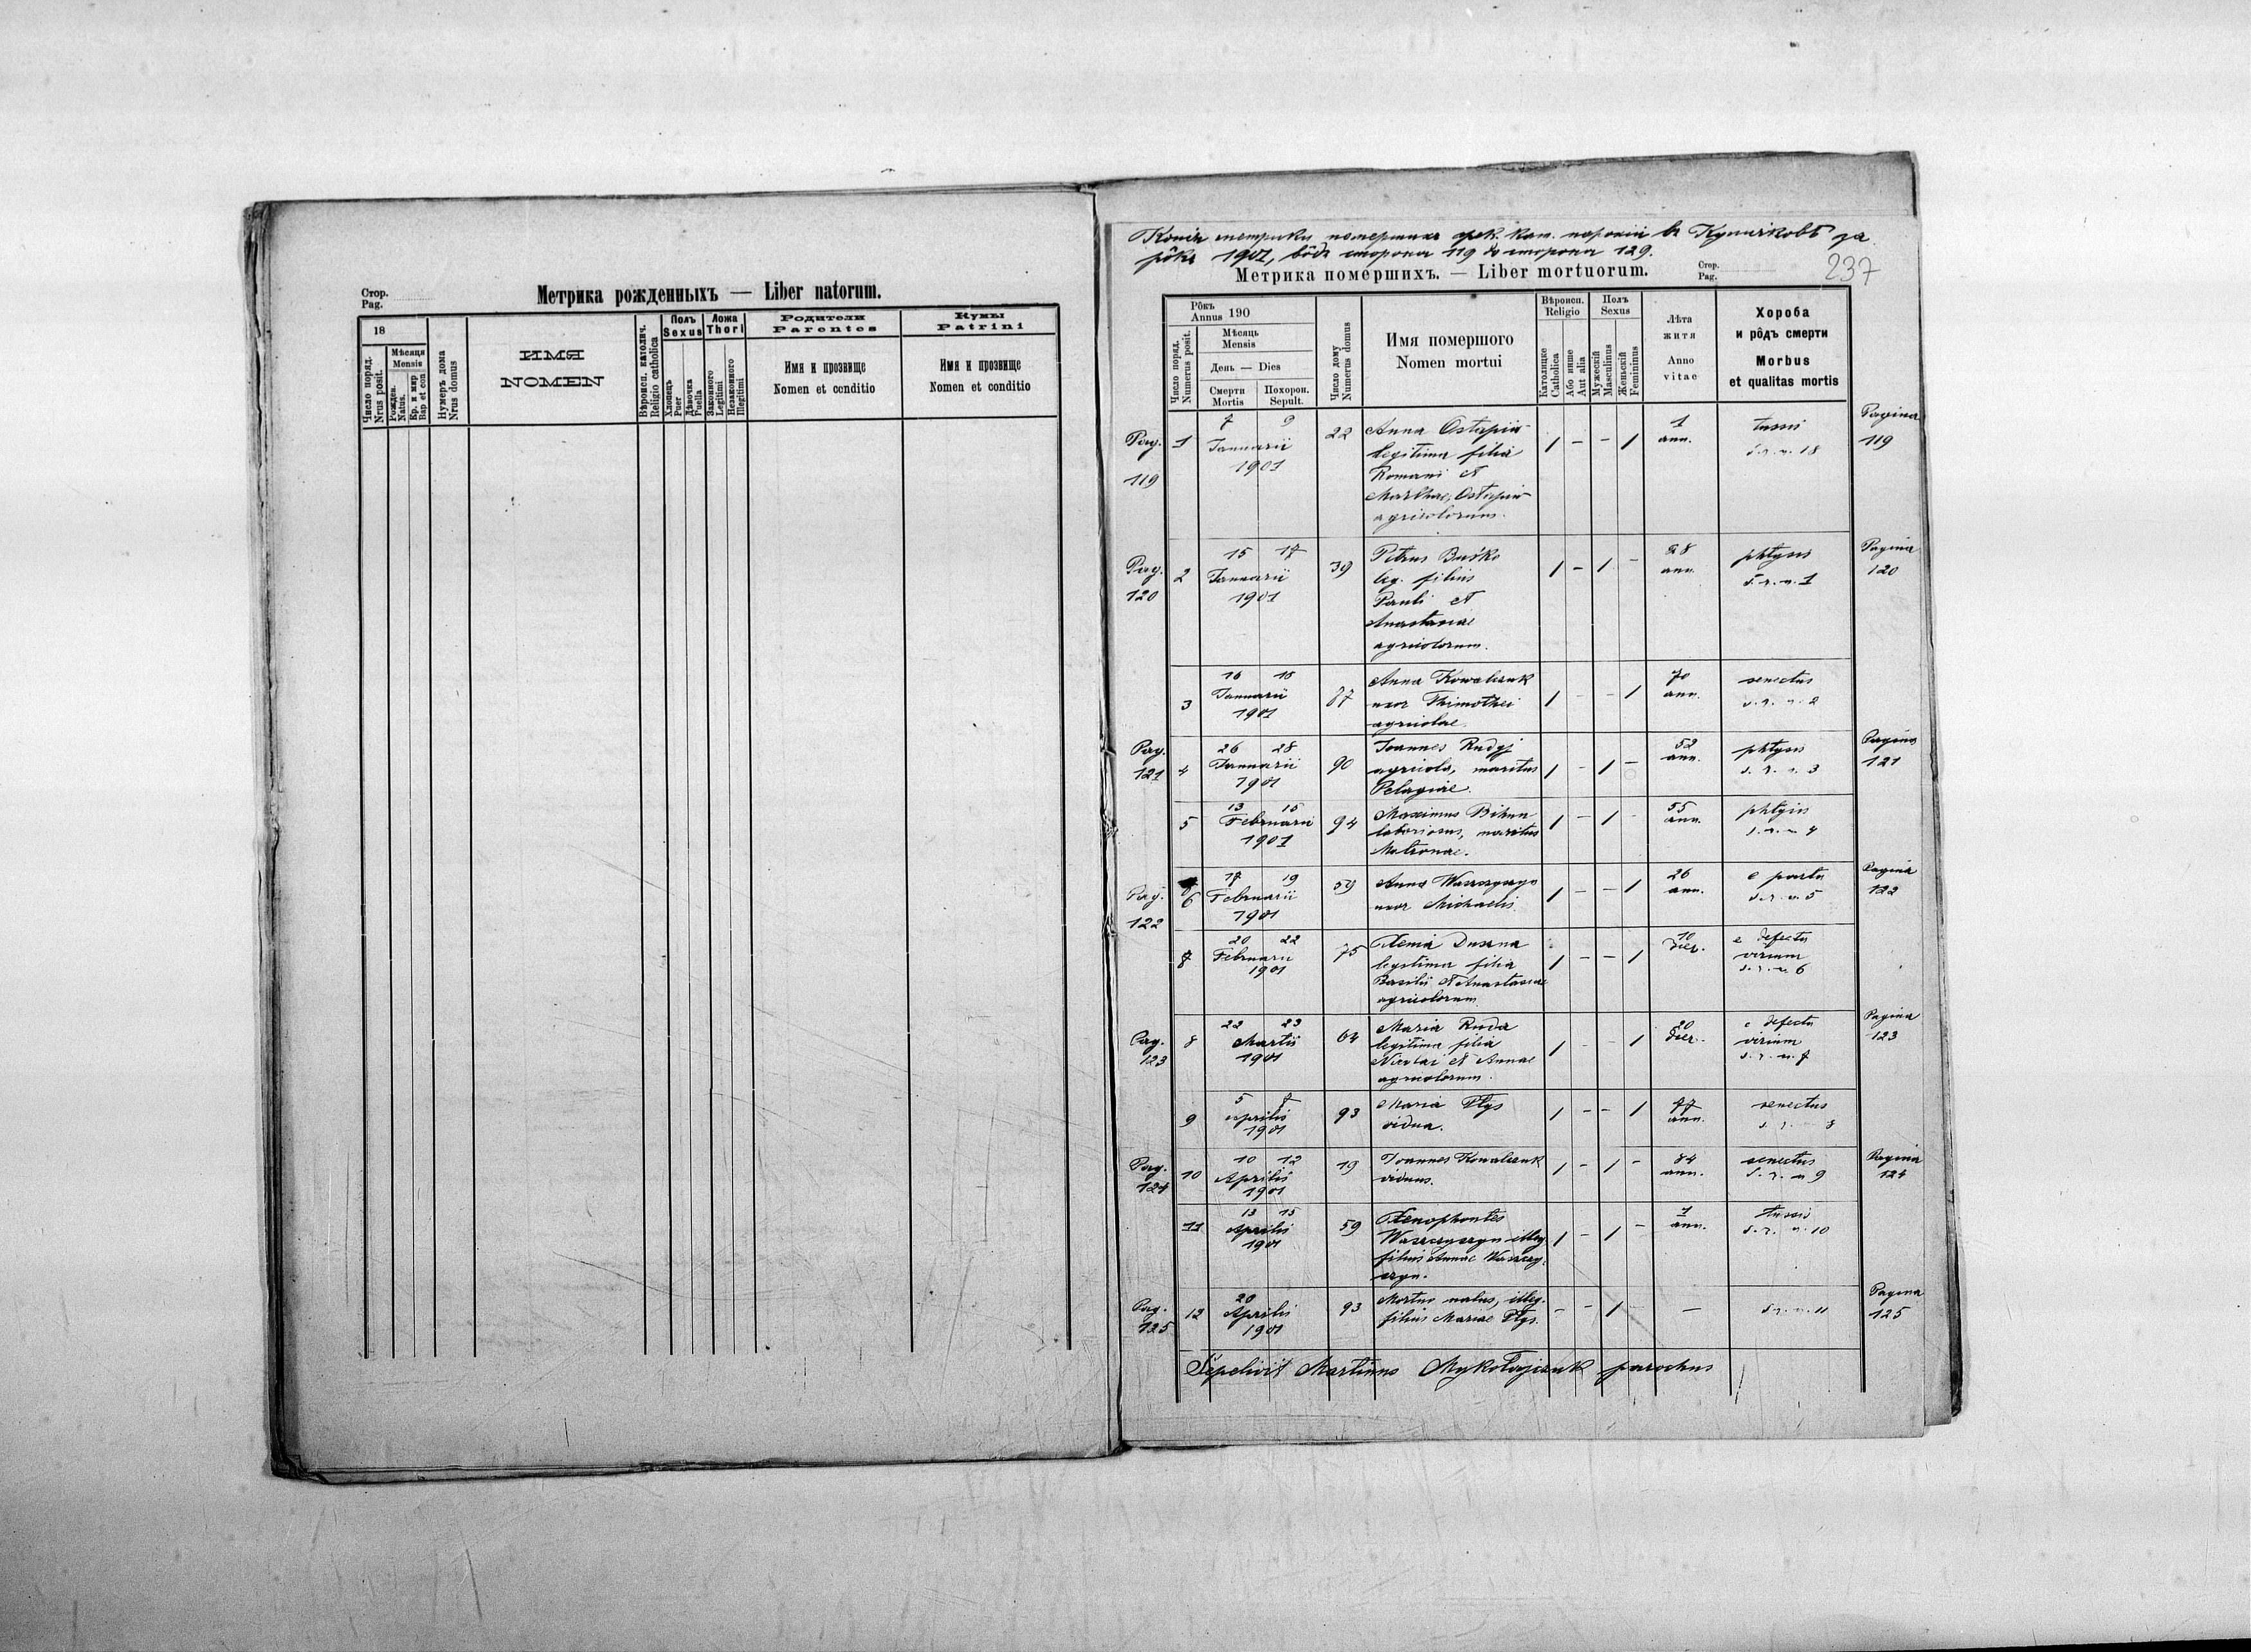 Стор.
Pag.
Метрика рожденныхъ — Liber natorum.
18
Число поряд.
Nrus posit.
Мѣсяця
Mensis
Рожден.
Natus.
Кр. и мир
Bap et con
Нумеръ дома
Nrus domus
ИМЯ
NOMEN
Вѣроисп. католич.
Religio catholica
Полъ
Sexus
Хлопець
Puer
Дѣвочка
Puella
Ложа
Thori
Законного
Legitimi
Незаконного
Illegitimi
Родители
Parentes
Имя и прозвище
Nomen et conditio
Кумы
Patrini
Имя и прозвище
Nomen et conditio
Копія метрики померших грек. кат. парохіи въ Куничковѣ за
рôкъ 1901, вôдъ сторона 119 до сторона 129.
Метрика помершихъ. — Liber mortuorum.
Стор.
Pag.
237
Рôкъ
Annus 190
Число поряд.
Numerus posit.
Мѣсяць
Mensis
День — Dies
Смерти
Mortis
Похорон.
Sepult.
Число дому
Numerus domus
Имя помершого
Nomen mortui
Вѣроисп.
Religio
Католицке
Catholica
Або инше
Aut alia
Полъ
Sexus
Мужескій
Masculinus
Женьскій
Femininus
Лѣта
житя
Anno
vitae
Хороба
и рôдъ смерти
Morbus
et qualitas mortis
Pag. 119
1
7 9
Januarii
1901
22
Anna Ostapia
legitima filia
Romani et
Marthae Ostapia
agricolorum.
1 - - 1
1
ann.
tussis
s. r. n. 18
Pagina
119
Pag. 120
2
15 17
Januarii
1901
39
Petrus Buśko
leg. filius
Pauli et
Anastasiae
agricolorum.
1 - 1 -
28
ann.
phtysis
s. r. n. 1
Pagina
120
3
16 18
Januarii
1901
87
Anna Kowalczuk
uxor Thimothei
agricolae.
1 - - 1
70
ann.
senectus
s. r. n. 2
Pag. 121
4
26 28
Januarii
1901
90
Joannes Rudyj
agricola, maritus
Pelagiae.
1 - 1 -
52
ann.
phtysis
s. r. n. 3
Pagina
121
5
13 15
Februarii
1901
94
Maximus Bihun
laboriosus, maritus
Matronae.
1 - 1 -
55
ann.
phtysis
s. r. n. 4
Pag. 122
6
17 19
Februarii
1901
59
Anna Waszczyszyn
uxor Michaelis.
1 - - 1
26
ann.
e partu
s. r. n. 5
Pagina
122
7
20 22
Februarii
1901
75
Xenia Duszna
legitima filia
Basilii et Anastasiae
agricolorum.
1 - - 1
10
dier.
e defectu
virium
s. r. n. 6
Pag. 123
8
22 23
Martii
1901
64
Maria Ruda
legitima filia
Nicolai et Annae
agricolorum.
1 - - 1
20
dier.
e defectu
virium
s. r. n. 7
Pagina
123
9
5 7
Aprilis
1901
93
Maria Płys
vidua.
1 - - 1
ann.
senectus
s. r. n. 8
Pag. 124
10
10 12
Aprilis
1901
19
Joannes Kowalczuk
viduus.
1 - 1 -
84
ann.
senectus
s. r. n. 9
Pagina
124
11
13 15
Aprilis
1901
59
Xenophontes
Waszczyszyn illeg
filius Annae Waszczy-
szyn.
1 - 1 -
1
ann.
tussis
s. r. n. 10
Pag. 125
12
20
Aprilis
1901
93
Mortuo natus, illeg.
filius Mariae Płys.
- - 1 -
—
s. r. n. 11
Pagina
125
Sepelivit Martinus Mykołajczuk parochus